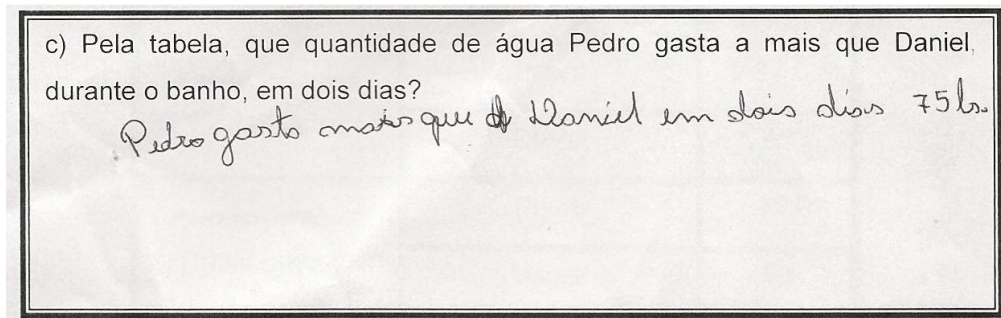 c) Pela tabela, que quantidade de água Pedro gasta a mais que Daniel,
durante o banho, em dois dias?
Pedro gasto mais que Daniel em dois dias 75 ls.